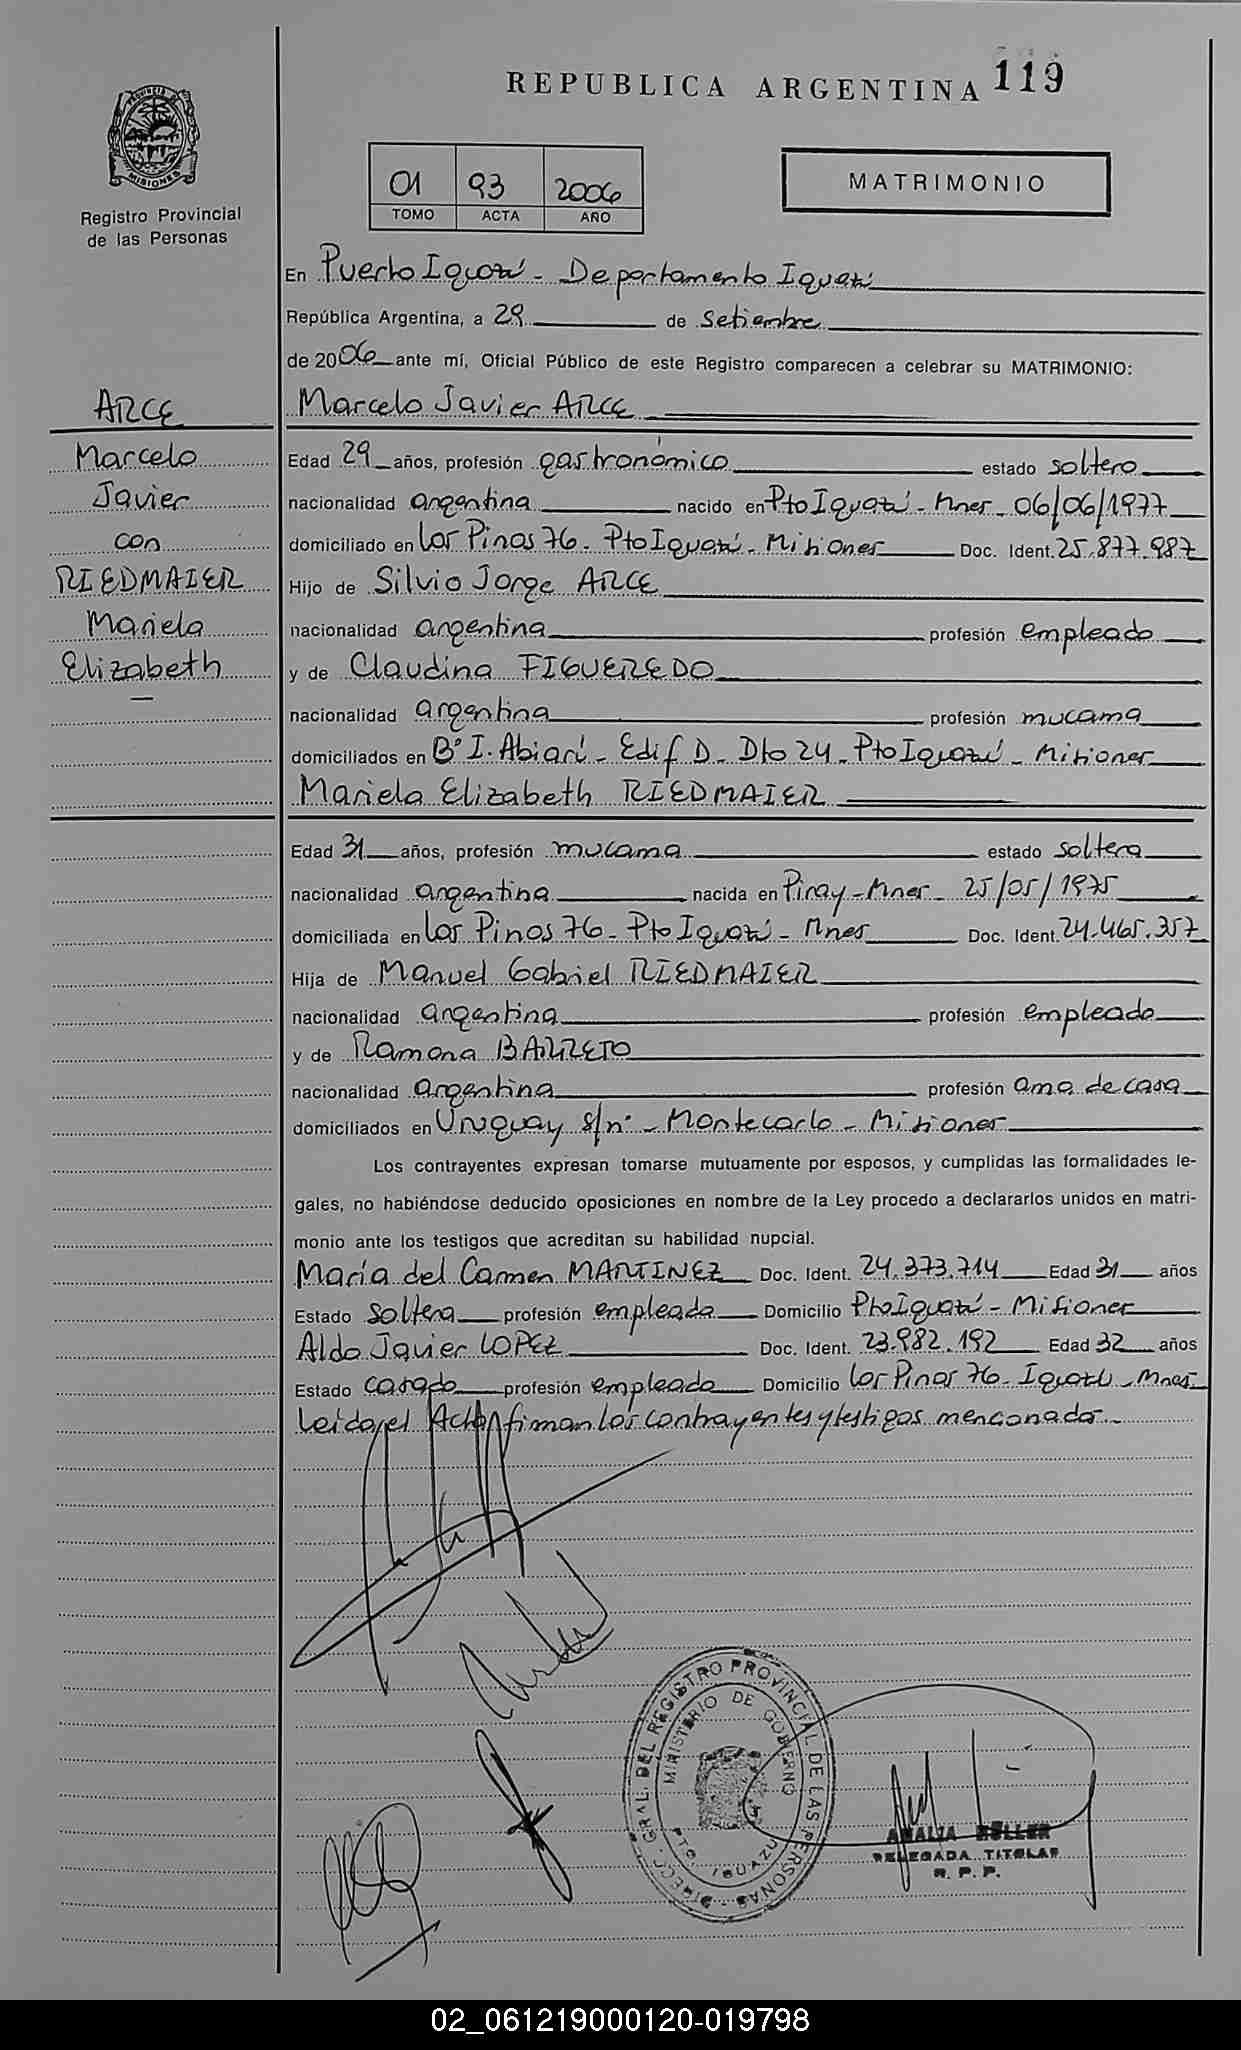 REPUBLICA ARGENTINA 119
PROVINCIA DE MISIONES
Registro Provincial
de las Personas
01 93 2006
TOMO ACTA AÑO
MATRIMONIO
En Puerto Iguazú - Departamento Iguazú
República Argentina, a 29 de Setiembre
de 2006 ante mí, Oficial Público de este Registro comparecen a celebrar su MATRIMONIO:
ARCE
Marcelo
Javier
con
RIEDMAIER
Mariela
Elizabeth
Marcelo Javier ARCE
Edad 29 años, profesión gastronómico estado soltero
nacionalidad argentina nacido en Pto Iguazú - Mnes - 06/06/1977
domiciliado en Los Pinos 76 - Pto Iguazú - Misiones Doc. Ident. 25.877.987
Hijo de Silvio Jorge ARCE
nacionalidad argentina profesión empleado
y de Claudina FIGUEREDO
nacionalidad argentina profesión mucama
domiciliados en Bº I. Abiarí - Edif D - Dto 24 - Pto Iguazú - Misiones
Mariela Elizabeth RIEDMAIER
Edad 31 años, profesión mucama estado soltera
nacionalidad argentina nacida en Piray - Mnes - 25/05/1975
domiciliada en Los Pinos 76 - Pto Iguazú - Mnes Doc. Ident. 24.465.357
Hija de Manuel Gabriel RIEDMAIER
nacionalidad argentina profesión empleado
y de Ramona BARRETO
nacionalidad argentina profesión ama de casa
domiciliados en Uruguay s/nº - Montecarlo - Misiones
Los contrayentes expresan tomarse mutuamente por esposos, y cumplidas las formalidades le-
gales, no habiéndose deducido oposiciones en nombre de la Ley procedo a declararlos unidos en matri-
monio ante los testigos que acreditan su habilidad nupcial.
María del Carmen MARTINEZ Doc. Ident. 24.373.714 Edad 31 años
Estado soltera profesión empleada Domicilio Pto Iguazú - Misiones
Aldo Javier LOPEZ Doc. Ident. 23.982.192 Edad 32 años
Estado casado profesión empleado Domicilio Los Pinos 76 - Iguazú - Mnes
Leida el Acta firman los contrayentes y testigos mencionados.
DIRECC. GRAL. DEL REGISTRO PROVINCIAL DE LAS PERSONAS
MINISTERIO DE GOBIERNO
PTO. IGUAZU
DELEGADA TITULAR
R. P. P.
02_061219000120-019798